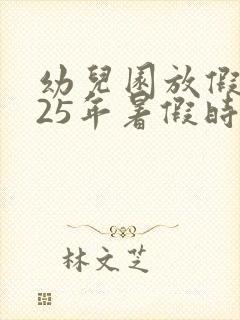 幼兒園放假
25年暑假時
林文芝